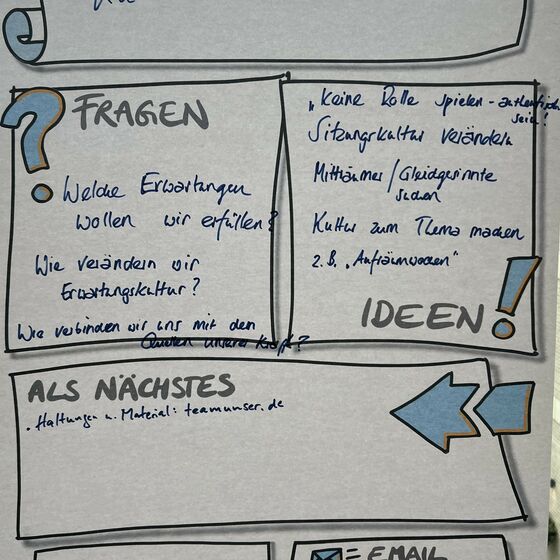 FRAGEN
Welche Erwartungen
wollen wir erfüllen?
Wie verändern wir
Erwartungskultur?
Wie verbinden wir uns mit den
Quellen unserer Kraft?
"Keine Rolle spielen - authentisch
sein!
Sitzungskultur verändern
Mitträumer / Gleichgesinnte
suchen
Kultur zum Thema machen
z.B. "Aufräumwochen"
IDEEN
ALS NÄCHSTES
. Haltungen u. Material: teamunser.de
= EMAIL